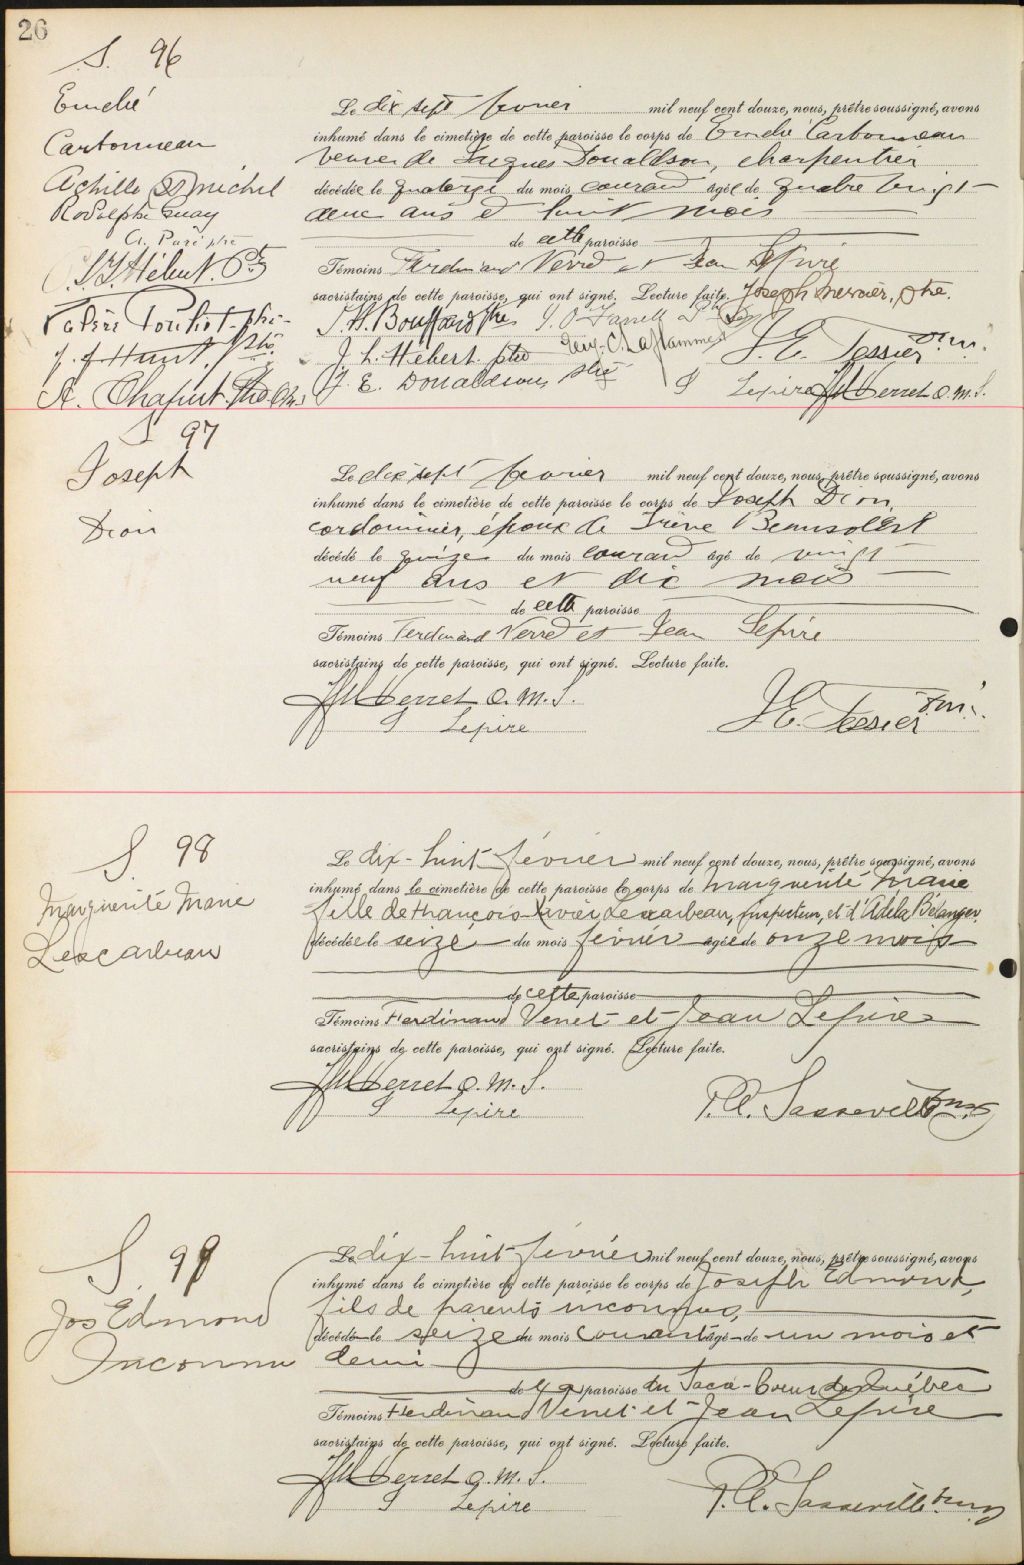 26
S. 96
Emelie
Carbonneau
Achille St Michel
Rodolphe Guay
A. Paré ptre
J. H. Hunt, ptre
Le dix sept fevrier mil neuf cent douze, nous, prêtre soussigné, avons
inhumé dans le cimetière de cette paroisse le corps de Emelie Carbonneau
veuve de Jacques Donaldson, charpentier
décédée le quatorze du mois courant agée de quatre vingt-
deux ans et huit mois
de cette paroisse
Témoins Ferdinand Verret et Jean Lepire
sacristains de cette paroisse, qui ont signé. Lecture faite. Joseph Mercier, ptre.
J. H. Bouffard ptre J. O'Farrell
J. L. Hébert ptre Eug. C. Laflamme J. E. Tessier v.m.
J. E. Donaldson, ptre J Lepire JM Verret O.M.S.
S 97
Joseph
Dion
Le dix sept fevrier mil neuf cent douze, nous, prêtre soussigné, avons
inhumé dans le cimetière de cette paroisse le corps de Joseph Dion,
cordonnier, époux de Irène Beausoleil
décédé le quinze du mois courant âgé de vingt-
neuf ans et dix mois
de cette paroisse
Témoins Ferdinand Verret et Jean Lepire
sacristains de cette paroisse, qui ont signé. Lecture faite.
JM Verret O.M.S.
J Lepire J. E. Tessier v.m.
S. 98
Marguerite Marie
Lescarbeau
Le dix-huit février mil neuf cent douze, nous, prêtre soussigné, avons
inhumé dans le cimetière de cette paroisse le corps de Marguerite Marie
fille de François-Xavier Lescarbeau, inspecteur, et d'Adéla Bélanger
décédée le seize du mois février agée de onze mois
de cette paroisse
Témoins Ferdinand Verret et Jean Lepire
sacristains de cette paroisse, qui ont signé. Lecture faite.
JM Verret O.M.S.
J Lepire P. C. Sasseville
S. 99
Jos Edmond
Inconnu
Le dix-huit février mil neuf cent douze, nous, prêtre soussigné, avons
inhumé dans le cimetière de cette paroisse le corps de Joseph Edmond,
fils de parents inconnus,
décédé le seize du mois courant âgé de un mois et
demi
de la paroisse du Sacré-Coeur de Québec
Témoins Ferdinand Verret et Jean Lepire
sacristains de cette paroisse, qui ont signé. Lecture faite.
JM Verret O.M.S.
J Lepire P. C. Sasseville